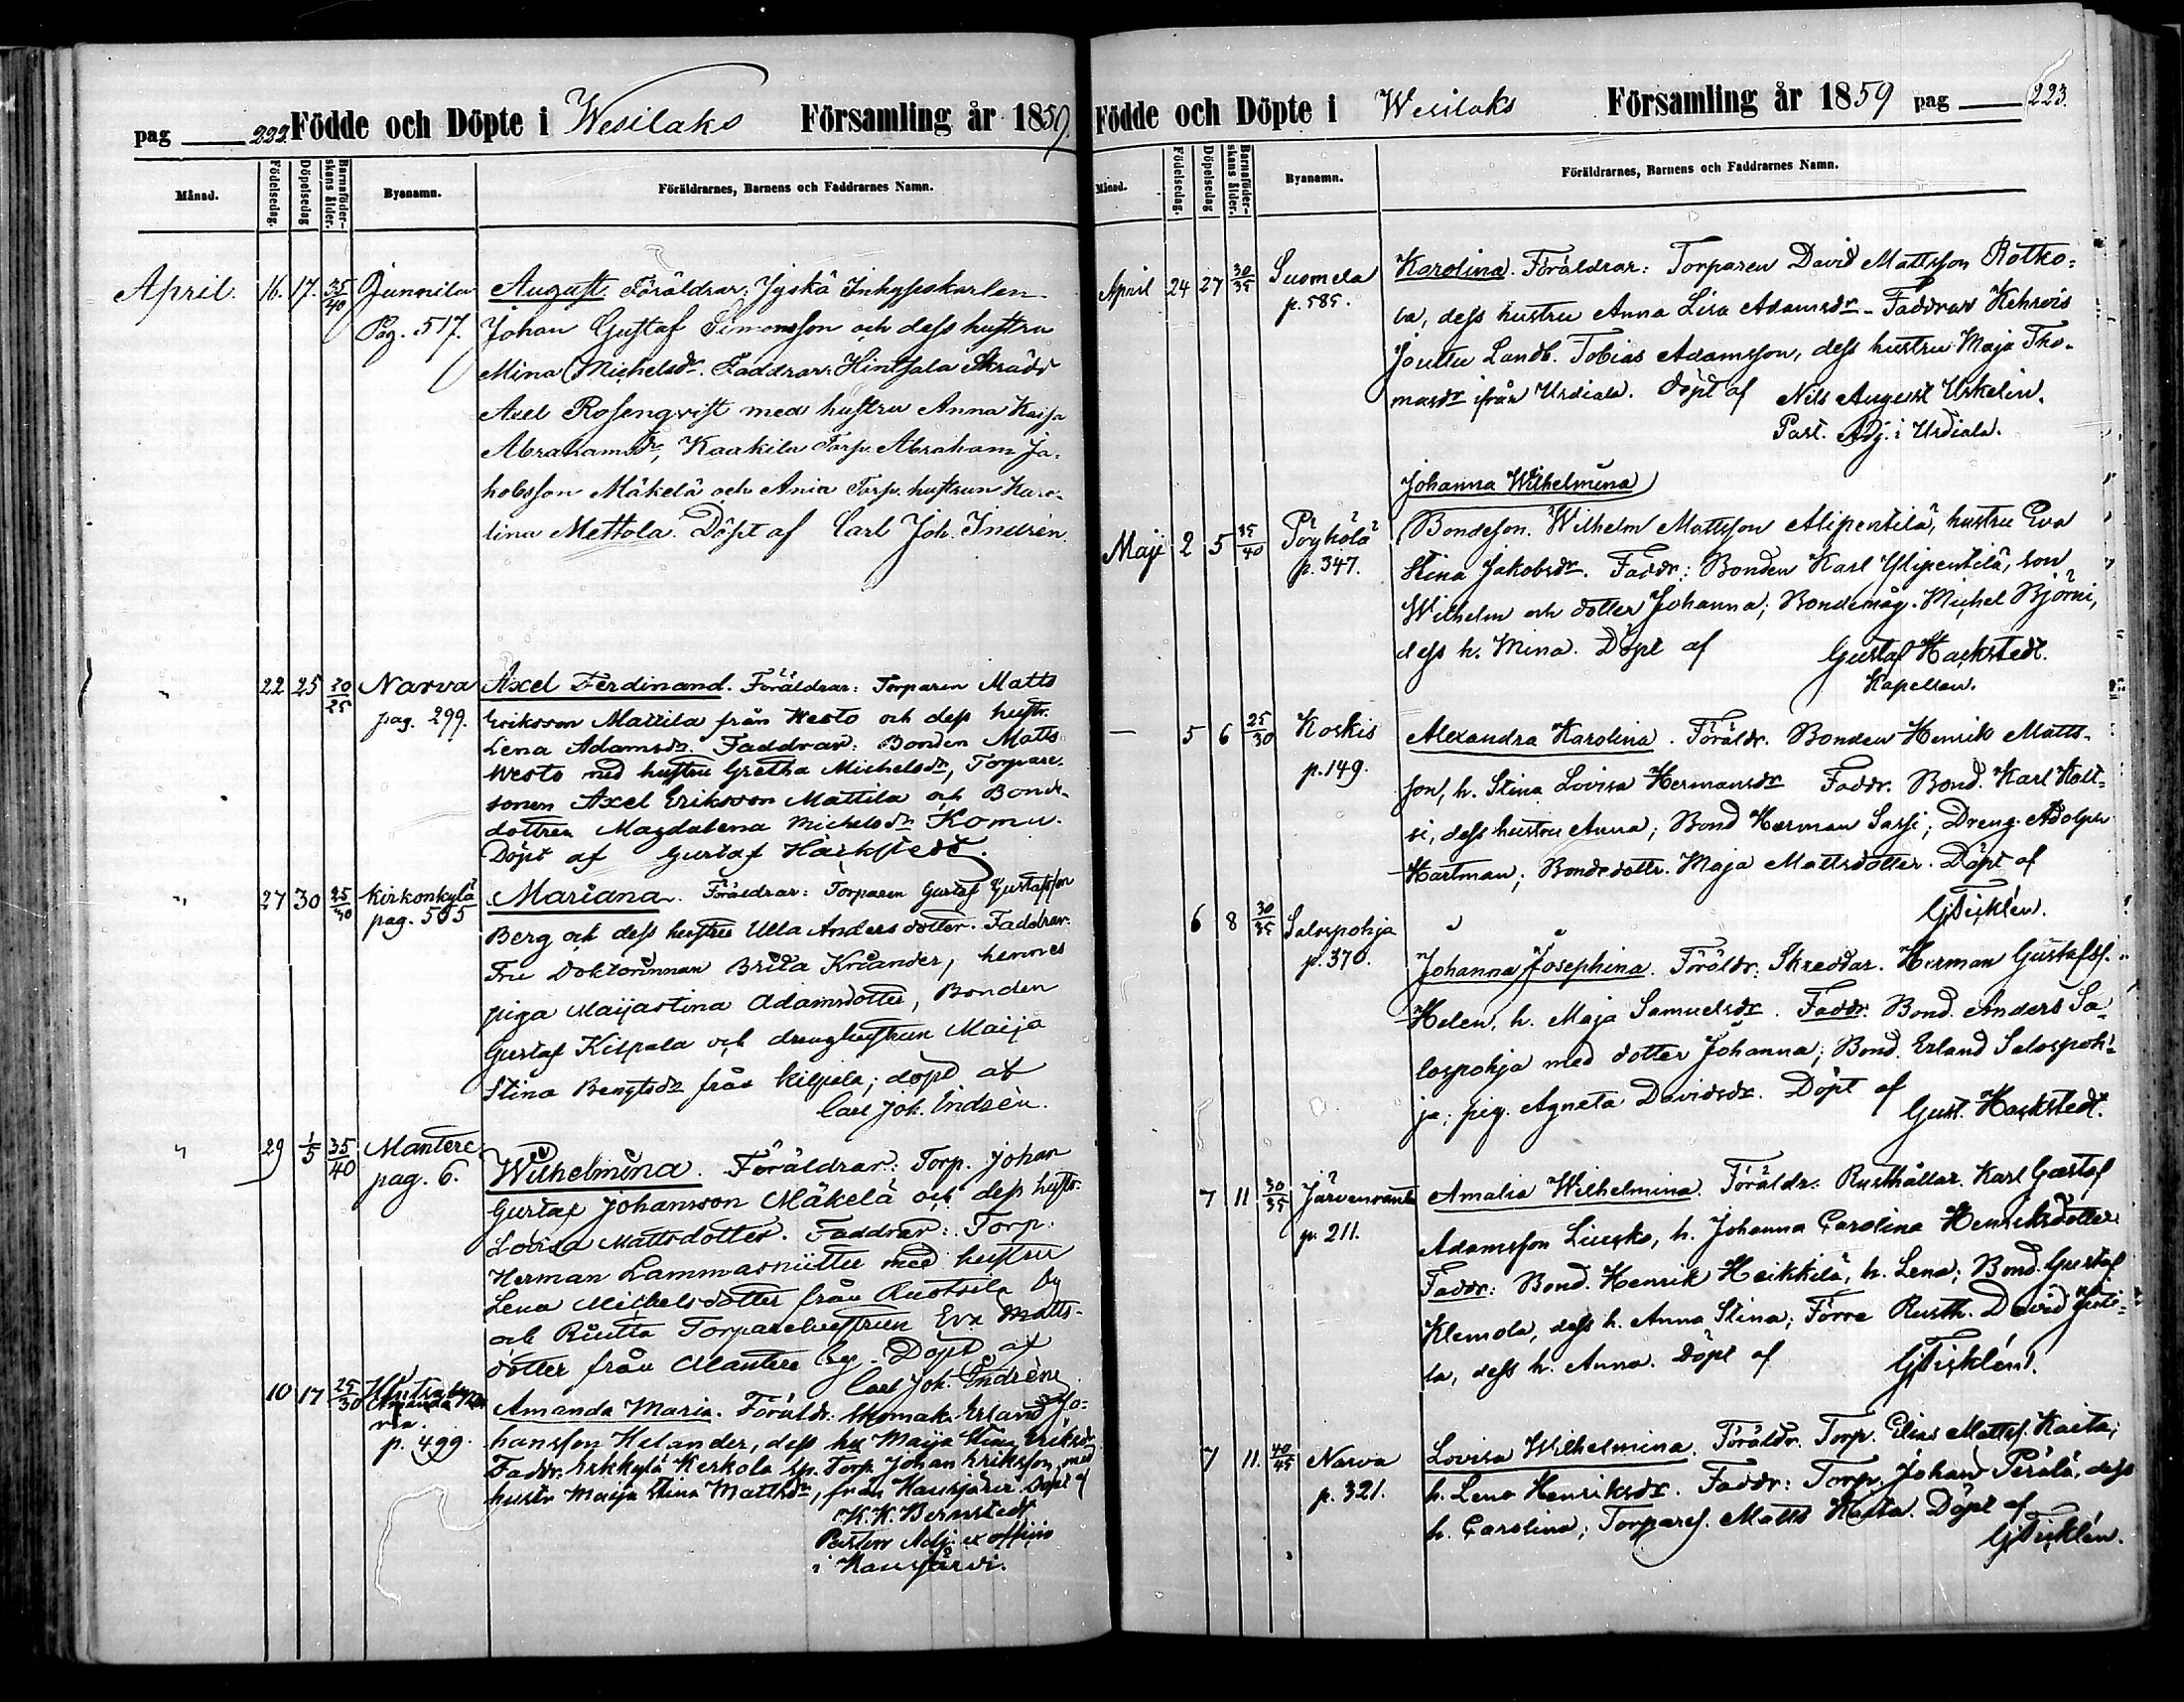 pag 223. Födde och Döpte i Wesilaks Församling år 1859.
Månad. Födelsedag. Döpelsedag Barnaföder-skans ålder. Byanamn. Föräldrarnes, Barnens och Faddrarnes Namn.
April. 16. 17. 35/40 Junnila August. Föräldrar: Jyskä Inhyseskarlen
Pag. 517. Johan Gustaf Simonsson och dess hustru
Mina Michelsdr. Faddrar: Hintsala Skrädd
Axel Rosenqvist med hustru Anna Kaisa
Abrahamsdr, Kaakila Torp. Abraham Ja-
kobsson Mäkelä och Ania Torp. hustrun Karo-
lina Mettola. Döpt af Carl Joh. Indrén.
" 22 25 20/25 Narva Axel Ferdinand. Föräldrar: Torparen Matts
pag. 299. Eriksson Mattila från Westo och dess hustr.
Lena Adamsdr. Faddrar: Bonden Matts
Westo med hustru Gretha Michelsdr, Torpare-
sonen Axel Eriksson Mattila och Bond-
dottren Magdalena Michelsdr Komu.
Döpt af Gustaf Hackstedt.
" 27 30 25/30 Kirkonkylä Mariana. Föräldrar: Torparen Gustaf Gustafsson
pag. 505 Berg och dess hustru Ulla Andersdotter. Faddrar:
Fru Doktorinnan Brita Kriander, hennes
piga Maijastina Adamsdotter, Bonden
Gustaf Kilpala och drenghustrun Maija
Stina Bengtsdr från Kilpala; döpt af
Carl Joh. Indrén.
" 29 1/5 35/40 Mantere Wilhelmina. Föräldrar: Torp. Johan
pag. 6. Gustaf Johansson Mäkelä och dess hustr.
Lovisa Mattsdotter. Faddrar: Torp.
Herman Lammasniittu med hustru
Lena Michelsdotter från Ruotsila by
och Riutta Torparehustrun Eva Matts-
dotter från Mantere by. Döpt af
Carl Joh. Indrén.
10 17 25/30 Amanda Maria. Föräldr: Skomak. Erland Jo-
p. 499. hansson Helander, dess hu Maija Stina Eriksdr
Faddr. Erkkylä Kerkola sp. Torp. Johan Eriksson, med
hustr Maija Stina Mattsdr, från Hausjärvi. Döpt af
K. K. Bernstedt
Pastors Adj. ex officio
i Hausjärvi.
Födde och Döpte i Wesilaks Församling år 1859 pag 223.
Månad. Födelsedag. Döpelsedag Barnaföder-skans ålder. Byanamn. Föräldrarnes, Barnens och Faddrarnes Namn.
April 24 27 30/35 Suomela Karolina. Föräldrar: Torparen David Mattsson Rotko-
p. 585. va, dess hustru Anna Lisa Adamsdr. Faddrar Kehrois
Jouttu Landb. Tobias Adamsson, dess hustru Maja Tho-
masdr ifrån Urdiala. Döpt af Nils August Urkelin.
Past. Adj. i Urdiala.
Johanna Wilhelmina
Maji 2 5 35/40 Pöyhölä Bondeson. Wilhelm Mattsson Alipentilä, hustru Eva
p. 347. Stina Jakobsdr. Faddr: Bonden Karl Ylipentilä, son
Wilhelm och dotter Johanna; Bondemåg. Michel Björni,
dess h. Mina. Döpt af Gustaf Hackstedt.
Kapellan.
— 5 6 25/30 Koskis Alexandra Karolina. Föräldr. Bonden Henrik Matts-
p. 149. son, h. Stina Lovisa Hermansdr Faddr. Bond. Karl Kolt-
si, dess hustru Anna; Bond Herman Sassi; Dreng. Adolph
Hartman; Bondedottr. Maja Mattsdotter. Döpt af
GFicklén.
6 8 30/35 Salospohja
p. 370. Johanna Josephina. Föräldr: Skreddar. Herman Gustafss.
Helen, h. Maja Samuelsdr. Faddr: Bond. Anders Sa-
lospohja med dotter Johanna; Bond. Erland Salospoh-
ja; pig. Agneta Davidsdr. Döpt af Gust. Hackstedt.
7 11 30/35 Järvenranta Amalia Wilhelmina. Föräldr: Rusthållar. Karl Gustaf
p. 211. Adamsson Liuksa, h. Johanna Carolina Henriksdotter
Faddr: Bond. Henrik Heikkilä, h. Lena; Bond. Gustaf
Klemola, dess h. Anna Stina; Förre Rusth. David
la, dess h. Anna. Döpt af GFicklén.
7 11 40/45 Narva Lovisa Wilhelmina. Föräldr. Torp. Elias Mattss. Kaita;
p. 321. h. Lena Henriksdr. Faddr: Torp. Johan Perälä, dess
h. Carolina; Torpares. Matts Kaita. Döpt af
GFicklén.